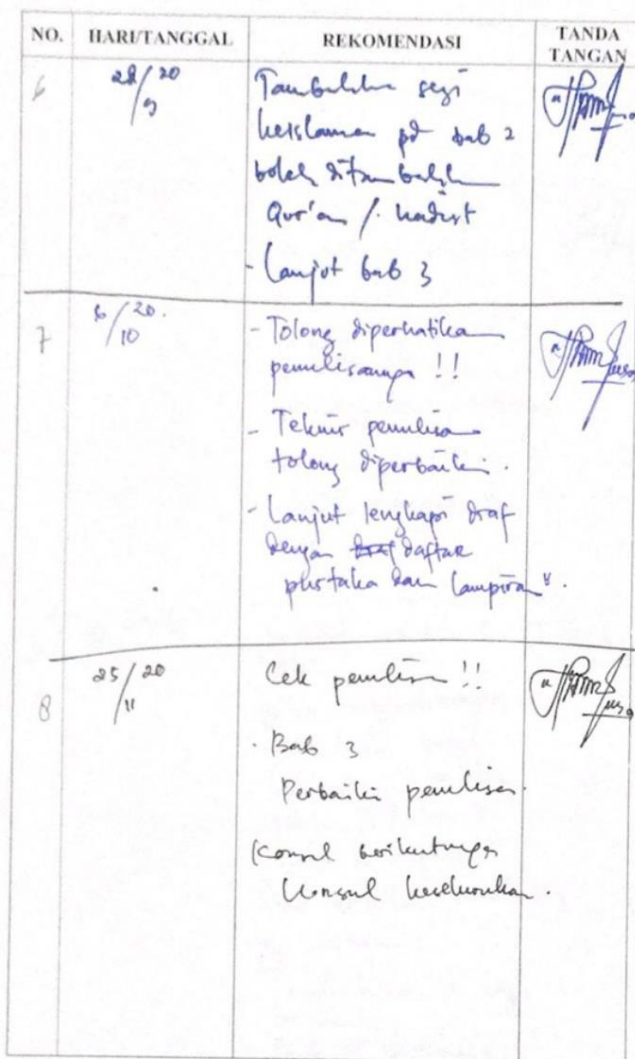 NO. HARI/TANGGAL REKOMENDASI TANDA TANGAN
6 28/9 20 Tambahkan segi
keislaman pd bab 2
boleh ditambahkan
Qur'an / hadist
- Lanjut bab 3
7 6/10 20. - Tolong diperhatikan
penulisannya !!
- Teknis penulisan
tolong diperbaiki.
- Lanjut lengkapi draf
dengan draf daftar
pustaka dan lampiran".
8 25/11 20 Cek penulisan !!
. Bab 3
Perbaiki penulisan.
Konsul berikutnya
Konsul keseluruhan.